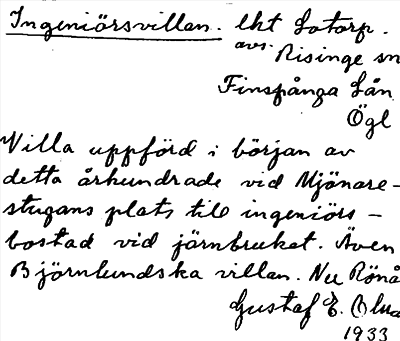 Ingeniörsvillan. lht Lotorp.
avs. Risinge sn
Finspånga län
Ögl
Villa uppförd i början av
detta århundrade vid Mjönare-
stugans plats till ingeniörs-
bostad vid järnbruket. Även
Björnlundska villan. Nu Rönå
Gustaf E.
1933